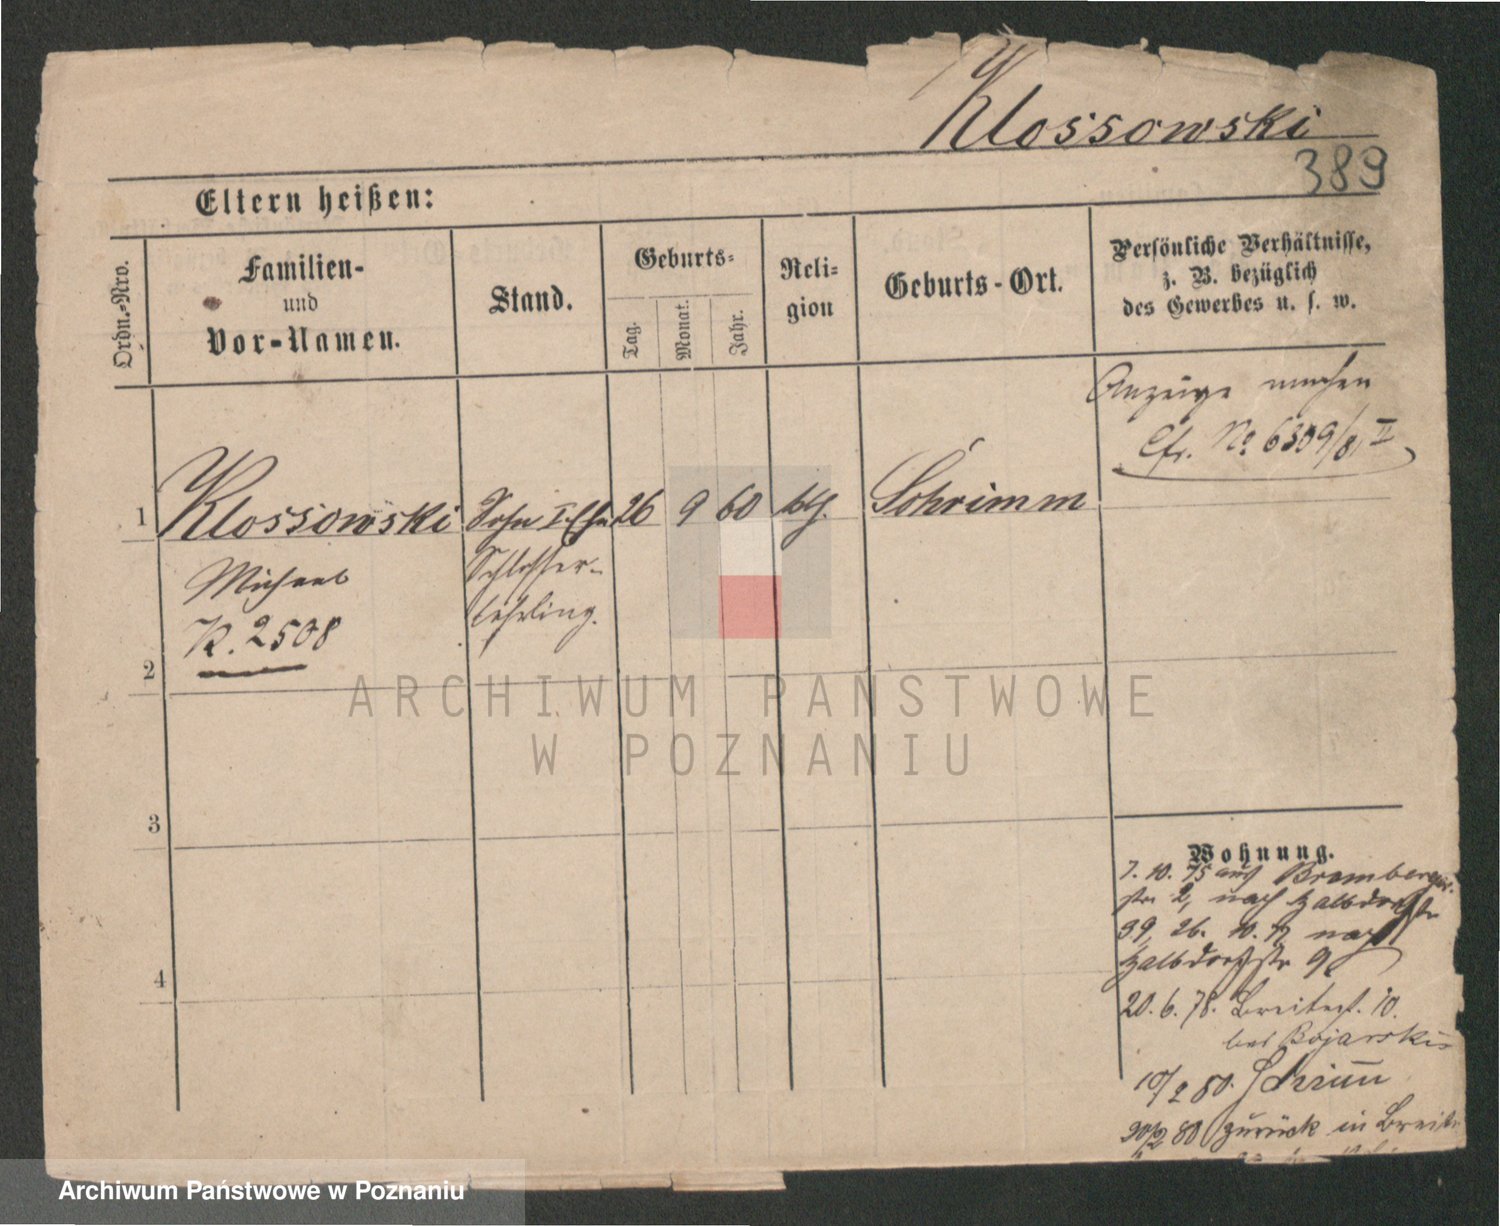 Klossowski
389
Eltern heißen:
Ordn.-Nro.
Familien-
und
Vor-Namen.
Stand.
Geburts-
Tag.
Monat.
Jahr.
Reli-
gion
Geburts-Ort.
Persönliche Verhältnisse,
z. B. bezüglich
des Gewerbes u. s. w.
Anzeige machen
Cfr. No 6309/81 II
1 Klossowski Sohn I. Ehe 26 9 60 kth. Schrimm
Michael
Schlosser-
K. 2508
lehrling.
2
ARCHIWUM PAŃSTWOWE
W POZNANIU
3
Wohnung.
7. 10. 75 aus Bromberger-
str 2, nach Halbdorfstr
39, 26. 10. 77 nach
Halbdorfstr 9
4
20. 6. 78. Breitest. 10.
bei Bojarski
10/2 80. Schrimm
20/2 80 zurück in Breite
Archiwum Państwowe w Poznaniu